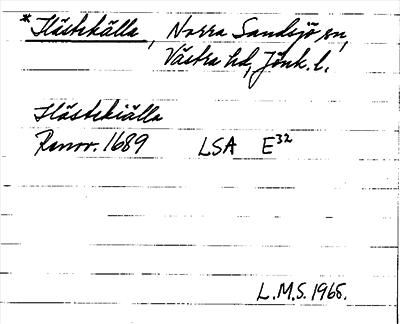 *Hästekälla, Norra Sandsjö sn,
Västra hd, Jönk. l.
Hästekiälla
Renov. 1689 LSA E32
L.M.S. 1965.